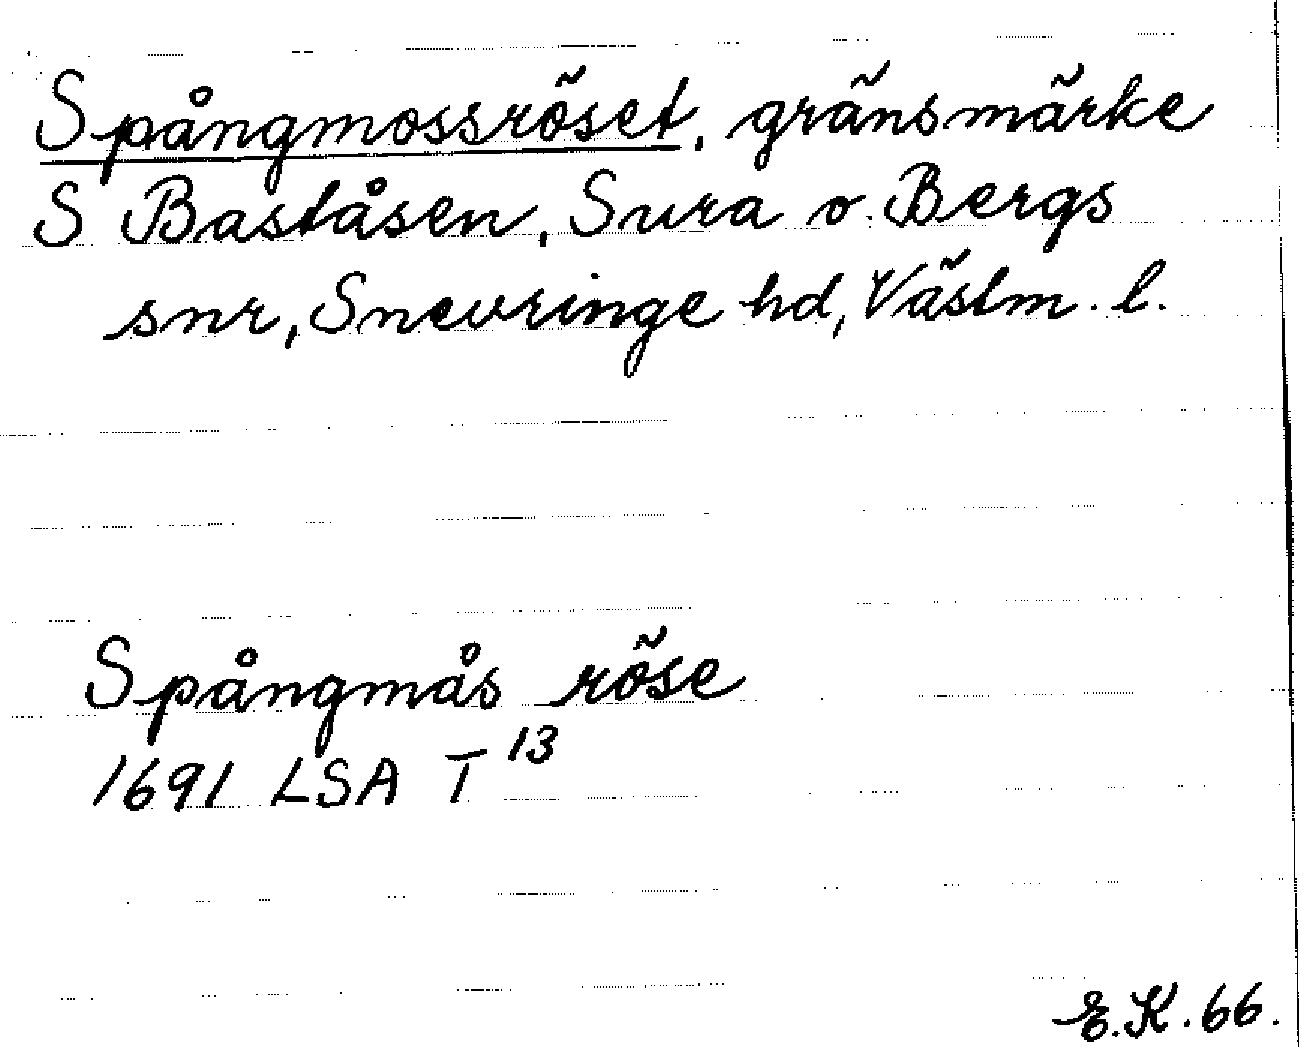 Spångmossröset, gränsmärke
S Baståsen, Sura o. Bergs
snr, Snevringe hd, Västm. l.
Spångmås röse
1691 LSA T 13
E.K. 66.